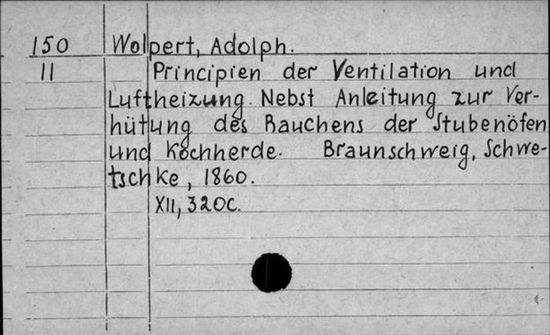 150 Wolpert, Adolph.
11 Principien der Ventilation und
Luftheizung. Nebst Anleitung zur Ver-
hütung des Rauchens der Stubenöfen
und Kochherde. Braunschweig, Schwe-
tschke, 1860.
XII, 320c.